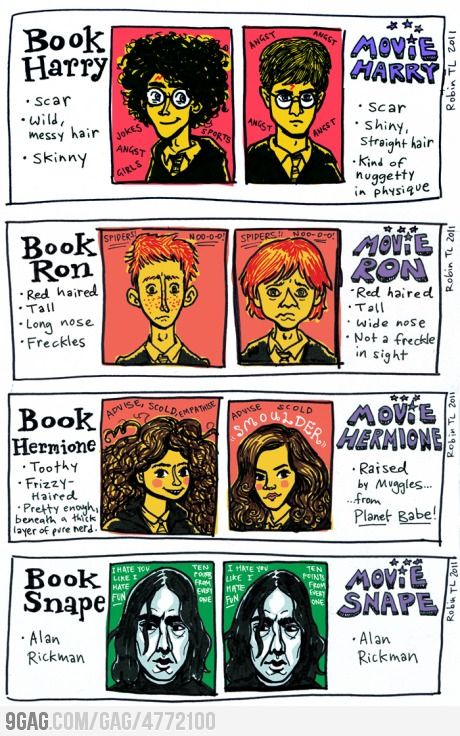 Book
Harry
• scar
• Wild,
messy hair
• Skinny
JOKES
ANGST
GIRLS
SPORTS
ANGST
ANGST
ANGST
ANGST
MOVIE
HARRY
• Scar
• Shiny,
straight hair
• Kind of
nuggetty
in physique
Robin TL 2011
Book
Ron
• Red haired
• Tall
• Long nose
• Freckles
SPIDERS!! NOO-O-O!
SPIDERS!! NOO-O-O!
MOVIE
RON
• Red haired
• Tall
• Wide nose
• Not a freckle
in sight
Robin TL 2011
Book
Hermione
• Toothy
• Frizzy-
Haired
• Pretty enough,
beneath a thick
layer of pure nerd.
ADVISE, SCOLD, EMPATHISE
ADVISE SCOLD
"SMOULDER"
MOVIE
HERMIONE
• Raised
by Muggles...
...from
Planet Babe!
Robin TL 2011
Book
Snape
• Alan
Rickman
I HATE YOU
LIKE I
HATE
FUN
TEN
POINTS
FROM
EVERY
ONE
I HATE YOU
LIKE I
HATE
FUN
TEN
POINTS
FROM
EVERY
ONE
MOVIE
SNAPE
• Alan
Rickman
Robin TL 2011
9GAG.COM/GAG/4772100